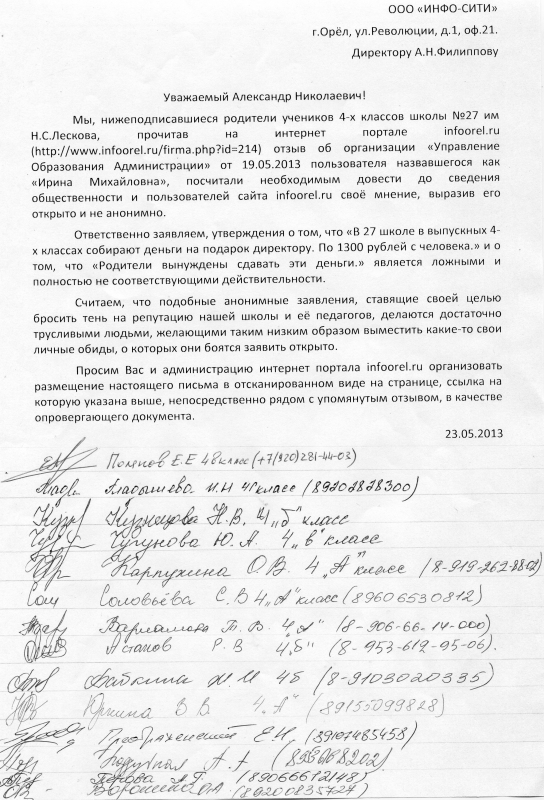 ООО «ИНФО-СИТИ»
г.Орёл, ул.Революции, д.1, оф.21.
Директору А.Н.Филиппову
Уважаемый Александр Николаевич!
Мы, нижеподписавшиеся родители учеников 4-х классов школы №27 им
Н.С.Лескова, прочитав на интернет портале infoorel.ru
(http://www.infoorel.ru/firma.php?id=214) отзыв об организации «Управление
Образования Администрации» от 19.05.2013 пользователя назвавшегося как
«Ирина Михайловна», посчитали необходимым довести до сведения
общественности и пользователей сайта infoorel.ru своё мнение, выразив его
открыто и не анонимно.
Ответственно заявляем, утверждения о том, что «В 27 школе в выпускных 4-
х классах собирают деньги на подарок директору. По 1300 рублей с человека.» и о
том, что «Родители вынуждены сдавать эти деньги.» является ложными и
полностью не соответствующими действительности.
Считаем, что подобные анонимные заявления, ставящие своей целью
бросить тень на репутацию нашей школы и её педагогов, делаются достаточно
трусливыми людьми, желающими таким низким образом выместить какие-то свои
личные обиды, о которых они боятся заявить открыто.
Просим Вас и администрацию интернет портала infoorel.ru организовать
размещение настоящего письма в отсканированном виде на странице, ссылка на
которую указана выше, непосредственно рядом с упомянутым отзывом, в качестве
опровергающего документа.
23.05.2013
Е.Е 4в класс (+7(920)281-44-03)
Кладышева И.Н 4 класс (89202828300)
Кузнецова Н.В. 4 „б" класс
Чугунова Ю.А. 4 „в" класс
Карпухина О.В. 4 „А" класс
Соловьёва С.В 4 „А" класс (89606530812)
Варламова Т.В. 4 „А" (8-906-66-14-000)
Астапов Р В 4 „б" (8-953-612-95-06).
Бабкина И.И 4б (8-9103020335)
Юркина В В. 4 „А" (89155099828)
Преображенский Е.Н. (89107485458)
А.А
(89066612148)
(89200835727)